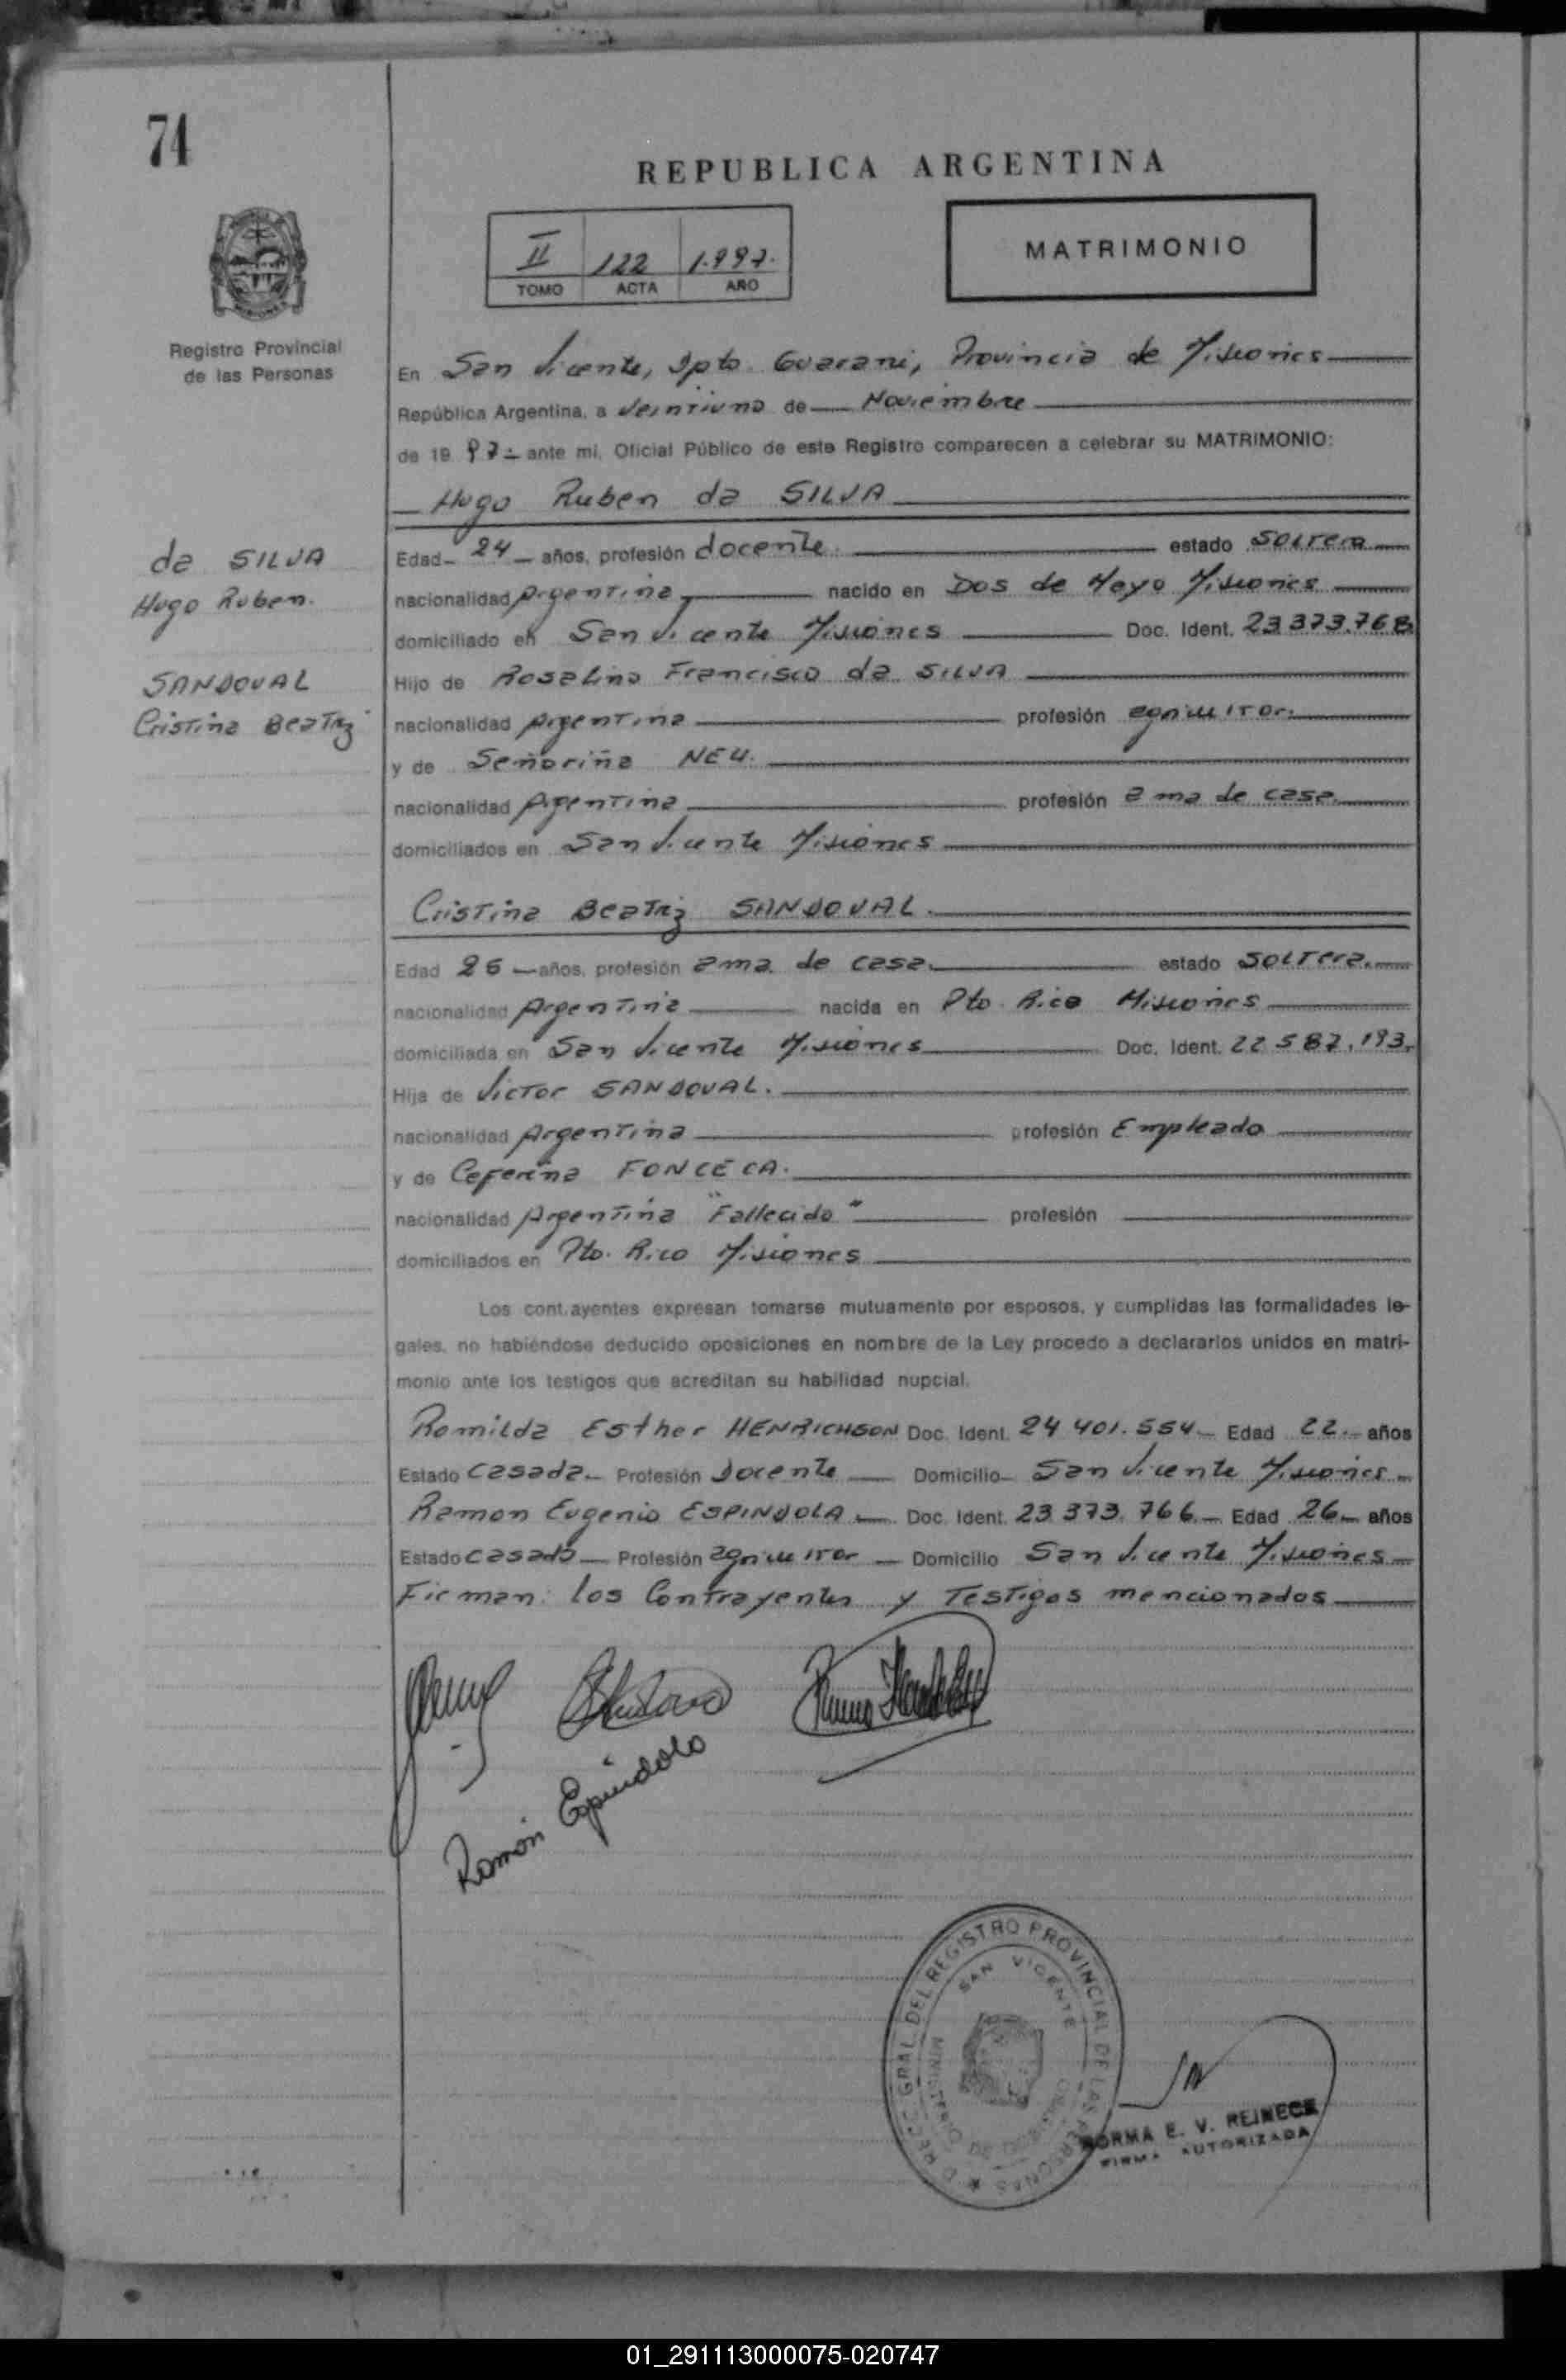 74
REPUBLICA ARGENTINA
II 122 1.997.
TOMO ACTA AÑO
MATRIMONIO
Registro Provincial
de las Personas
En San Vicente, Dpto. Guarani, Provincia de Misiones
República Argentina, a Veintiuno de Noviembre
de 19 97 ante mi, Oficial Público de este Registro comparecen a celebrar su MATRIMONIO:
Hugo Ruben da SILVA
da SILVA
Hugo Ruben.
SANDOVAL
Cristina Beatriz
Edad 24 años, profesión docente. estado Soltero
nacionalidad Argentina nacido en Dos de Mayo Misiones
domiciliado en San Vicente Misiones Doc. Ident. 23.373.768
Hijo de Rosalino Francisco da SILVA
nacionalidad Argentina profesión agricultor.
y de Señoriña NEU.
nacionalidad Argentina profesión ama de casa.
domiciliados en San Vicente Misiones
Cristina Beatriz SANDOVAL.
Edad 26 años, profesión ama de casa. estado Soltera.
nacionalidad Argentina nacida en Pto. Rico Misiones
domiciliada en San Vicente Misiones Doc. Ident. 22.587.193.
Hija de Victor SANDOVAL.
nacionalidad Argentina profesión Empleado
y de Ceferina FONCECA.
nacionalidad Argentina "Fallecido" profesión
domiciliados en Pto. Rico Misiones
Los cont.ayentes expresan tomarse mutuamente por esposos, y cumplidas las formalidades le-
gales, no habiéndose deducido oposiciones en nombre de la Ley procedo a declararlos unidos en matri-
monio ante los testigos que acreditan su habilidad nupcial.
Romilda Esther HENRICHSON Doc. Ident. 24.401.554 Edad 22. años
Estado Casada Profesión Docente Domicilio San Vicente Misiones
Ramon Eugenio ESPINDOLA Doc. Ident. 23.373.766 Edad 26 años
Estado Casado Profesión agricultor Domicilio San Vicente Misiones
Firman: los Contrayentes y Testigos mencionados
Ramón Espindola
DIREC. GRAL. DEL REGISTRO PROVINCIAL DE LAS PERSONAS
SAN VICENTE
MINISTERIO DE GOBIERNO
NORMA E. V. REINECE
FIRMA AUTORIZADA
01_291113000075-020747